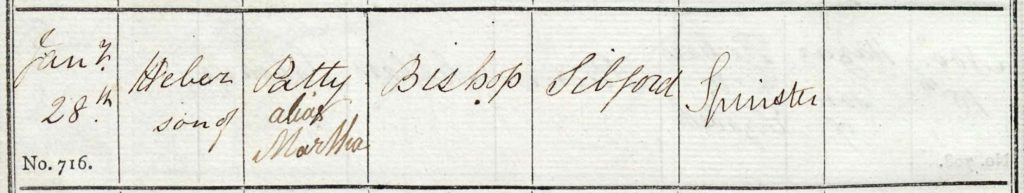 Jany. Heber Patty Bishop Sibford Spinster
28th. son of alias
Martha
No. 716.